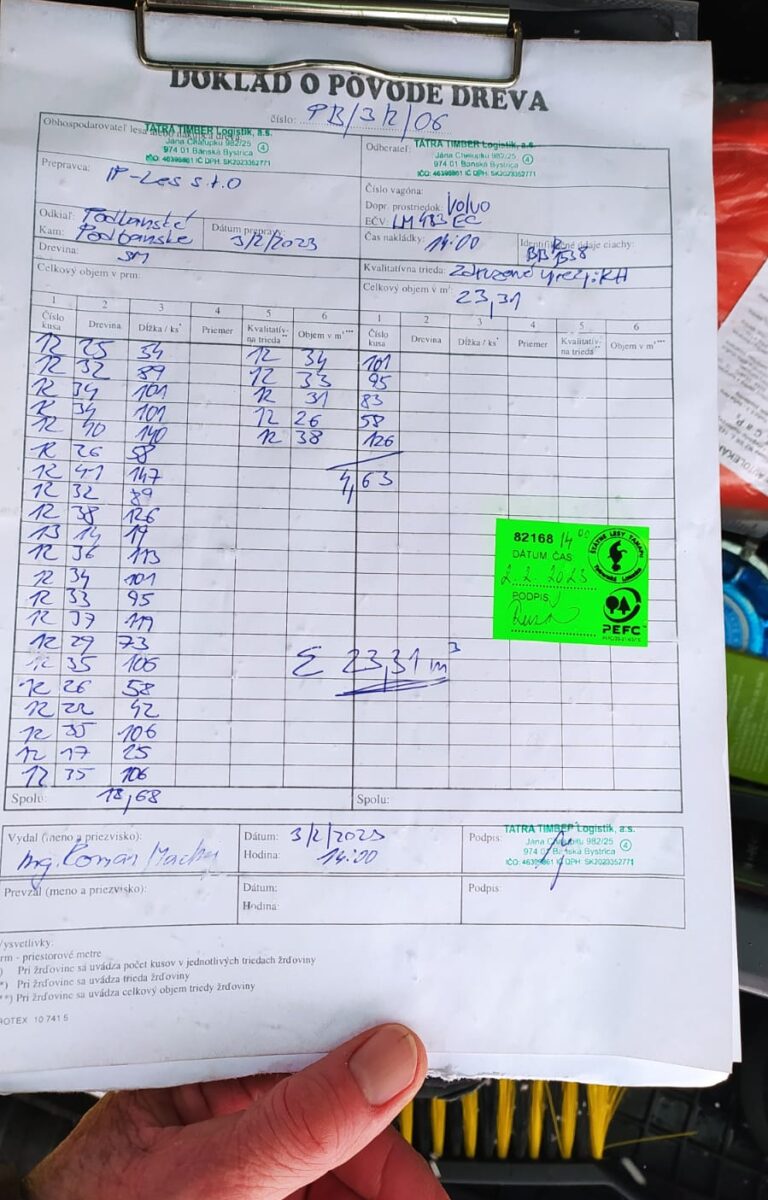 DOKLAD O PÔVODE DREVA
číslo: PB/3/2/06
Obhospodarovateľ lesa
TATRA TIMBER Logistik, a.s.
Jána Chalupku 982/25
974 01 Banská Bystrica
IČO: 46395861 IČ DPH: SK2023352771
4
Odberateľ:
TATRA TIMBER Logistik, a.s.
Jána Chalupku 982/25
974 01 Banská Bystrica
IČO: 46395861 IČ DPH: SK2023352771
4
Prepravca: IP-Les s.r.o
Číslo vagóna:
Dopr. prostriedok: Volvo
EČV: LM 483 EC
Odkiaľ: Podbanské
Kam: Podbanske
Dátum prepravy: 3/2/2023
Čas nakládky: 14:00
Identifikačné údaje ciachy:
Drevina: SM
Kvalitatívna trieda: Združené výrezy: KH
Celkový objem v prm:
Celkový objem v m³: 23,31
1 2 3 4 5 6 1 2 3 4 5 6
Číslo kusa Drevina Dĺžka / ks* Priemer Kvalitatív-na trieda** Objem v m³*** Číslo kusa Drevina Dĺžka / ks* Priemer Kvalitatív-na trieda** Objem v m³***
12 25 54 12 34 101
12 32 89 12 33 95
12 34 101 12 31 83
12 34 101 12 26 58
12 40 140 12 38 126
12 26 58
12 41 147 4,63
12 32 89
12 38 126
13 14 19
12 36 113
12 34 101
12 33 95
12 37 119
12 29 73
12 35 106
12 26 58
12 22 42
12 35 106
12 17 25
12 35 106
Σ 23,31 m³
82168 14 00
DÁTUM ČAS
2.2.2023
PODPIS
ŠTÁTNE LESY TANAPU
PEFC
Spolu: 18,68
Spolu:
Vydal (meno a priezvisko):
Ing. Roman
Dátum: 3/2/2023
Hodina: 14:00
Podpis:
TATRA TIMBER Logistik, a.s.
Jána Chalupku 982/25
974 01 Banská Bystrica
IČO: 46395861 IČ DPH: SK2023352771
4
Prevzal (meno a priezvisko):
Dátum:
Hodina:
Podpis:
Vysvetlivky:
prm - priestorové metre
*) Pri žrďovine sa uvádza počet kusov v jednotlivých triedach žrďoviny
**) Pri žrďovine sa uvádza trieda žrďoviny
***) Pri žrďovine sa uvádza celkový objem triedy žrďoviny
ROTEX 10 741 5